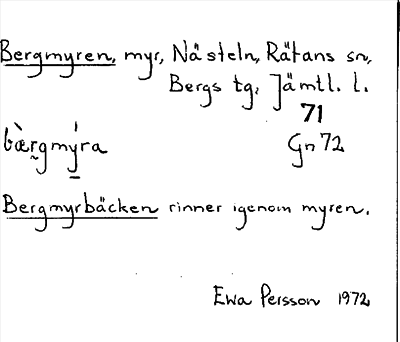 Bergmyren, myr, Nästeln, Rätans sn,
Bergs tg, Jämtl. l.
71
bæ̀r̰gmý̱ra Gn 72
Bergmyrbäcken rinner igenom myren.
Ewa Persson 1972